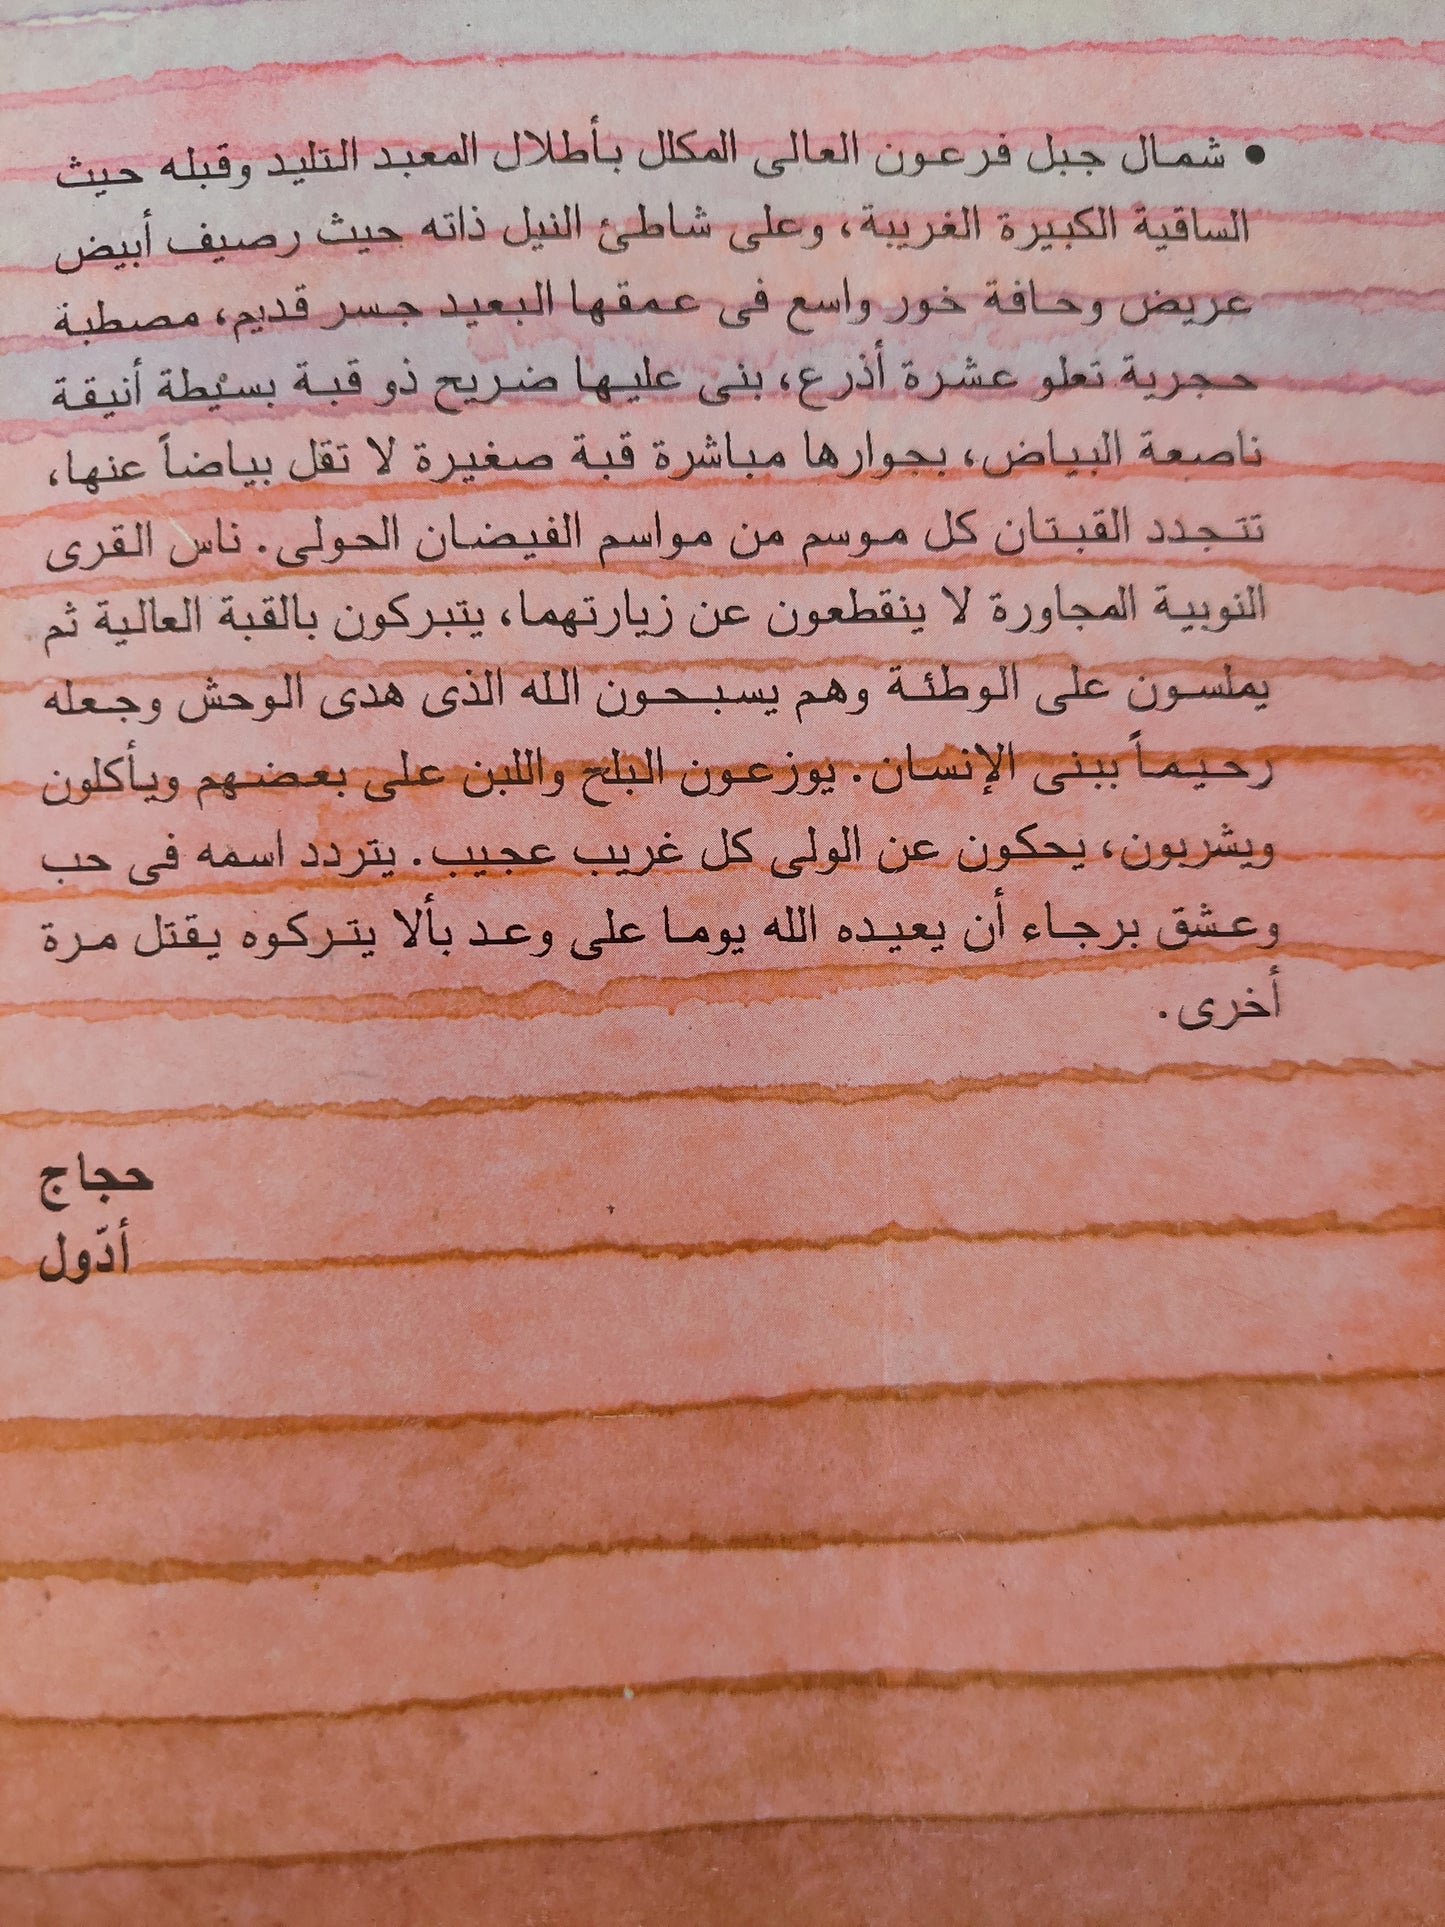 ● شمال جبل فرعون العالى المكلل بأطلال المعبد التليد وقبله حيث
الساقية الكبيرة الغريبة، وعلى شاطئ النيل ذاته حيث رصيف أبيض
عريض وحافة خور واسع فى عمقها البعيد جسر قديم، مصطبة
حجرية تعلو عشرة أذرع، بنى عليها ضريح ذو قبة بسيطة أنيقة
ناصعة البياض، بجوارها مباشرة قبة صغيرة لا تقل بياضاً عنها،
تتجدد القبتان كل موسم من مواسم الفيضان الحولى. ناس القرى
النوبية المجاورة لا ينقطعون عن زيارتهما، يتبركون بالقبة العالية ثم
يملسون على الوطئة وهم يسبحون الله الذى هدى الوحش وجعله
رحيماً ببنى الإنسان. يوزعون البلح واللبن على بعضهم ويأكلون
ويشربون، يحكون عن الولى كل غريب عجيب. يتردد اسمه فى حب
وعشق برجاء أن يعيده الله يوما على وعد بألا يتركوه يقتل مرة
أخرى.
حجاج
أدّول